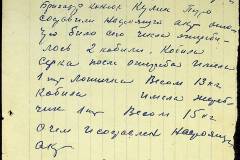 Бригадир конюх Кулик Петро
составили Настоящий акт о том
что было 270 числа ожереби-
лось 2 кобылы. Кобыла
Серка после ожереба имела
1 шт лошичка Весом 13 кг
Кобыла имела жереб-
чик 1 шт Весом 15 кг
О чем и составлен Настоящ
акт